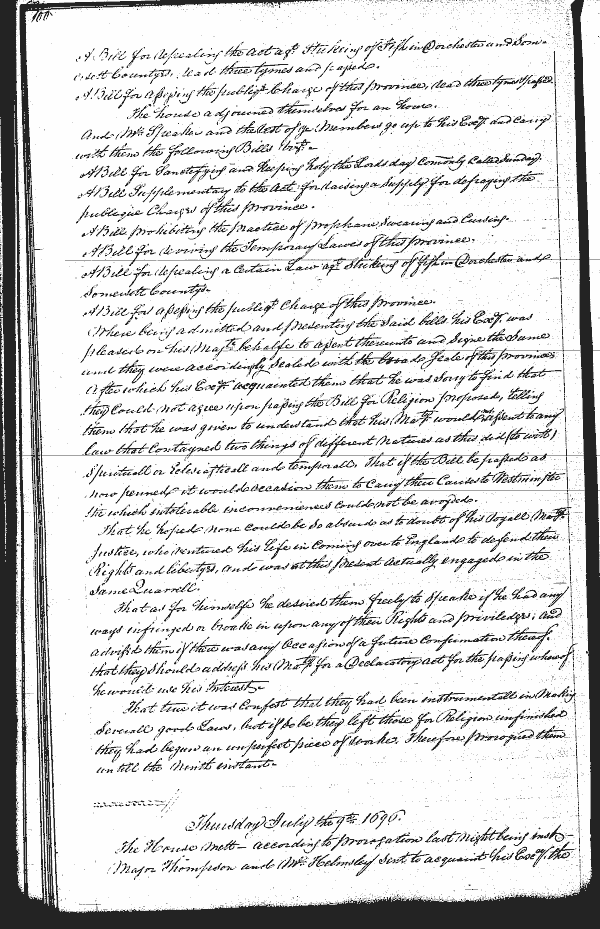 A Bill for repealing the Act agt. Strikeing of Fish in Dorchester and Som-
ersett Countyes, read three tymes and passed.
A Bill for assessing the publiqe. Charge of this Province, read three tymes & passed.
The house adjourned themselves for an houre.
And Mr. Speaker and the Rest of ye Members go up to his Excy. and carry
with them the following Bills vizt.
A Bill for Sanctifying and keeping holy the Lords day Comonly called Sunday.
A Bill Supplementary to the Act for raising a Supply for defraying the
publique Charges of this Province.
A Bill prohibiting the practice of prophane Swearing and Cursing.
A Bill for reviving the Temporary Lawes of this Province.
A Bill for repealing a Certain Law agt. Strikeing of fish in Dorchester and
Somersett Countys.
A Bill for assessing the publiqe. Charge of this Province.
Where being admitted and presenting the said bills his Excy. was
pleased on his Matys. behalfe to assent thereunto and Signe the Same
and they were accordingly Sealed with the broad Seale of this Province
After which his Excy. acquainted them that he was Sorry to find that
they Could not agree upon passing the Bill for Religion proposed, telling
them that he was given to understand that his Maty. would not assent to any
law that Contayned two things of different Natures as this did (to witt)
Spirituall or Eclesiasticall and temporall. That if the Bill be passed as
now penned it would occasion them to Carry their Causes to Westminster
the which intolerable inconveniences could not be avoyded.
That he hoped none could be so absurd as to doubt of his Royall Matys.
Justice, who ventured his life in Coming over to England to defend their
Rights and libertyes, and was at this present actually engaged in the
Same Quarrell.
That as for himselfe he desired them freely to Speake if he had any
ways infringed or broake in upon any of their Rights and priviledges; and
advised them if there was any Occasion of a future Confirmation thereof
that they Should address his Maty. for a Declaratory act for the passing whereof
he would use his Interest.
That true it was Confest that they had been instrumentall in Making
Severall good Laws, but if so be they left those for Religion unfinished
they had begun an imperfect piece of worke. Therefore prorogued them
untill the Ninth instant.
Thursday July the 9th. 1696.
The House mett according to prorogation last night being
Major Thompson and Mr. Helmsley sent to acquaint his Excy. the